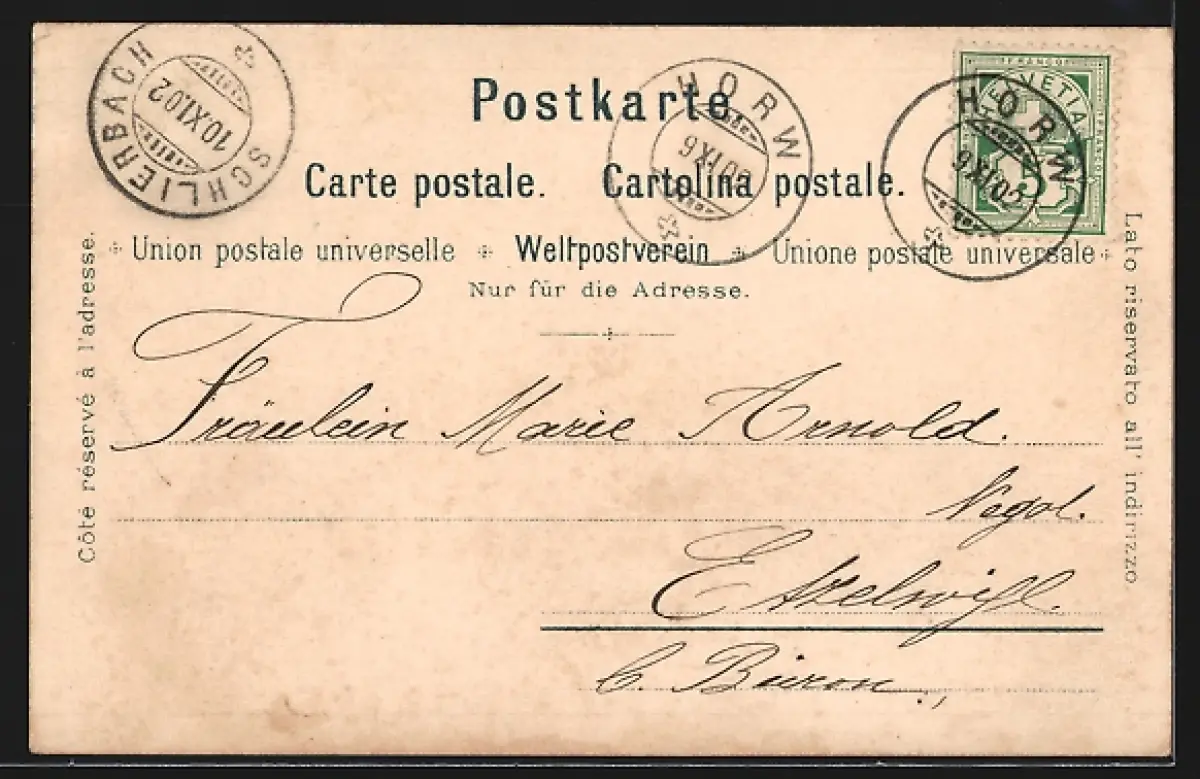 SCHLIERBACH
10.XI.02
HORW
9.XI.02
HORW
9.XI.02
FRANCO
HELVETIA
5
Postkarte
Carte postale. Cartolina postale.
Union postale universelle Weltpostverein Unione postale universale
Nur für die Adresse.
Côté réservé à l'adresse.
Lato riservato all' indirizzo
Fräulein Marie Arnold.
Negot.
Etzelwil.
b. Büron.